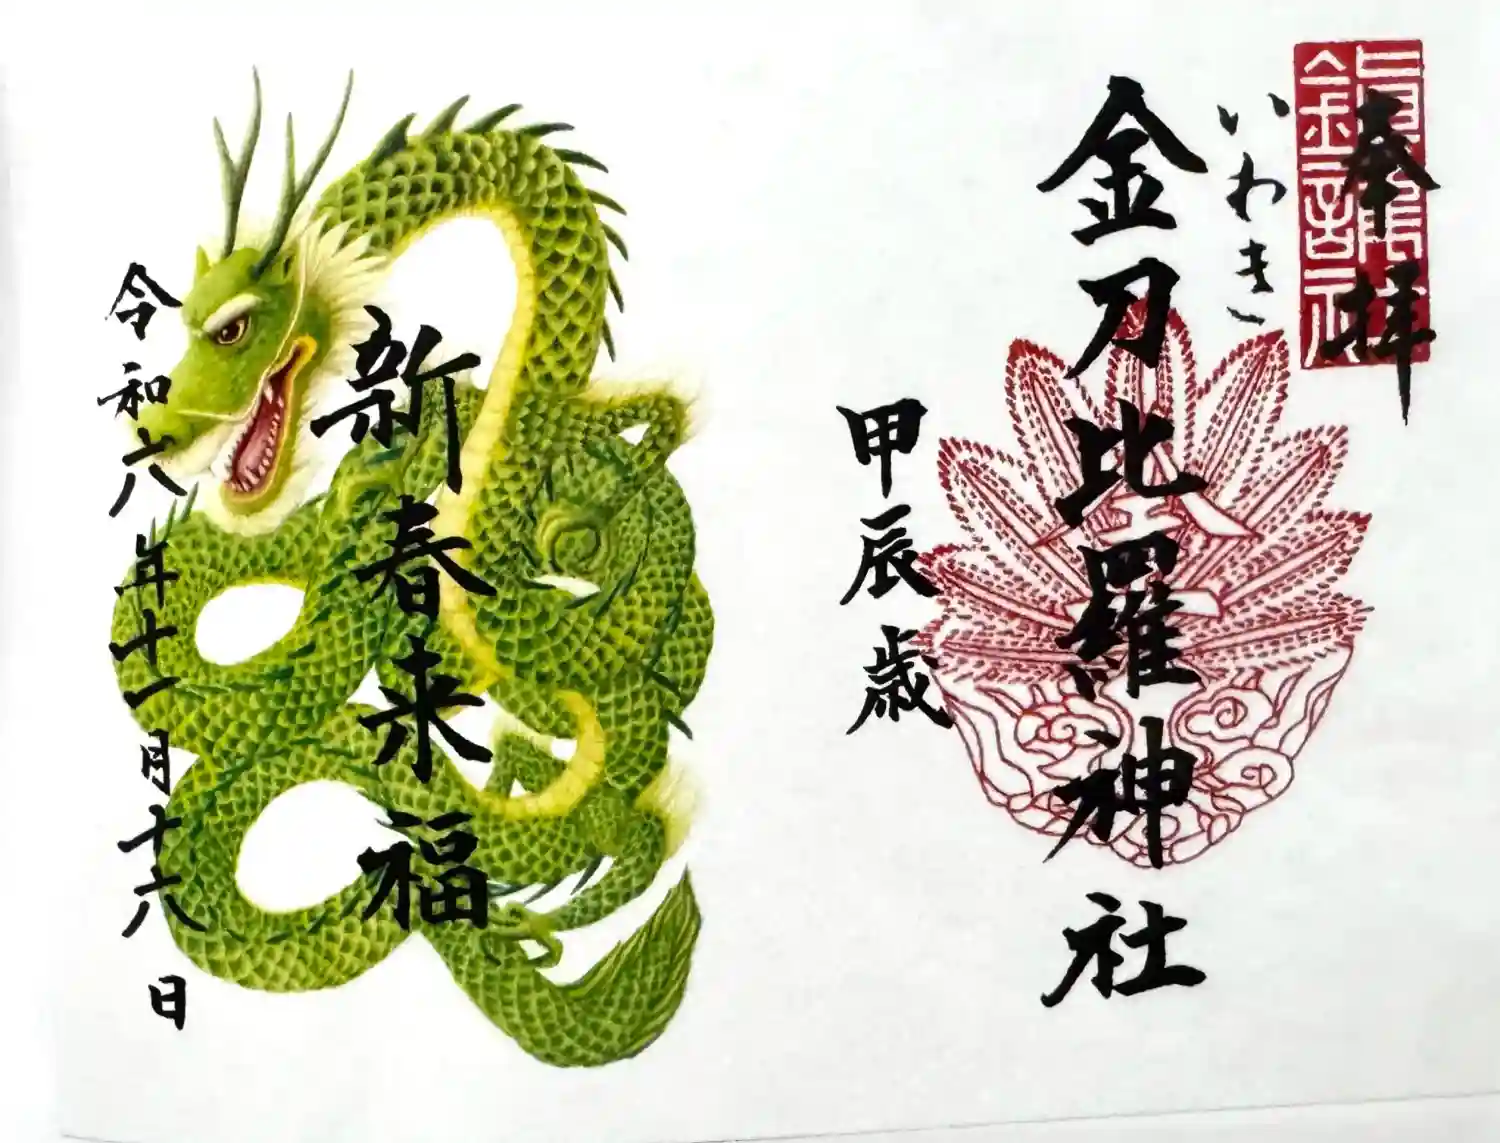 奉拝
いわき
金刀比羅神社
甲辰歳
新春来福
令和六年十一月十六日